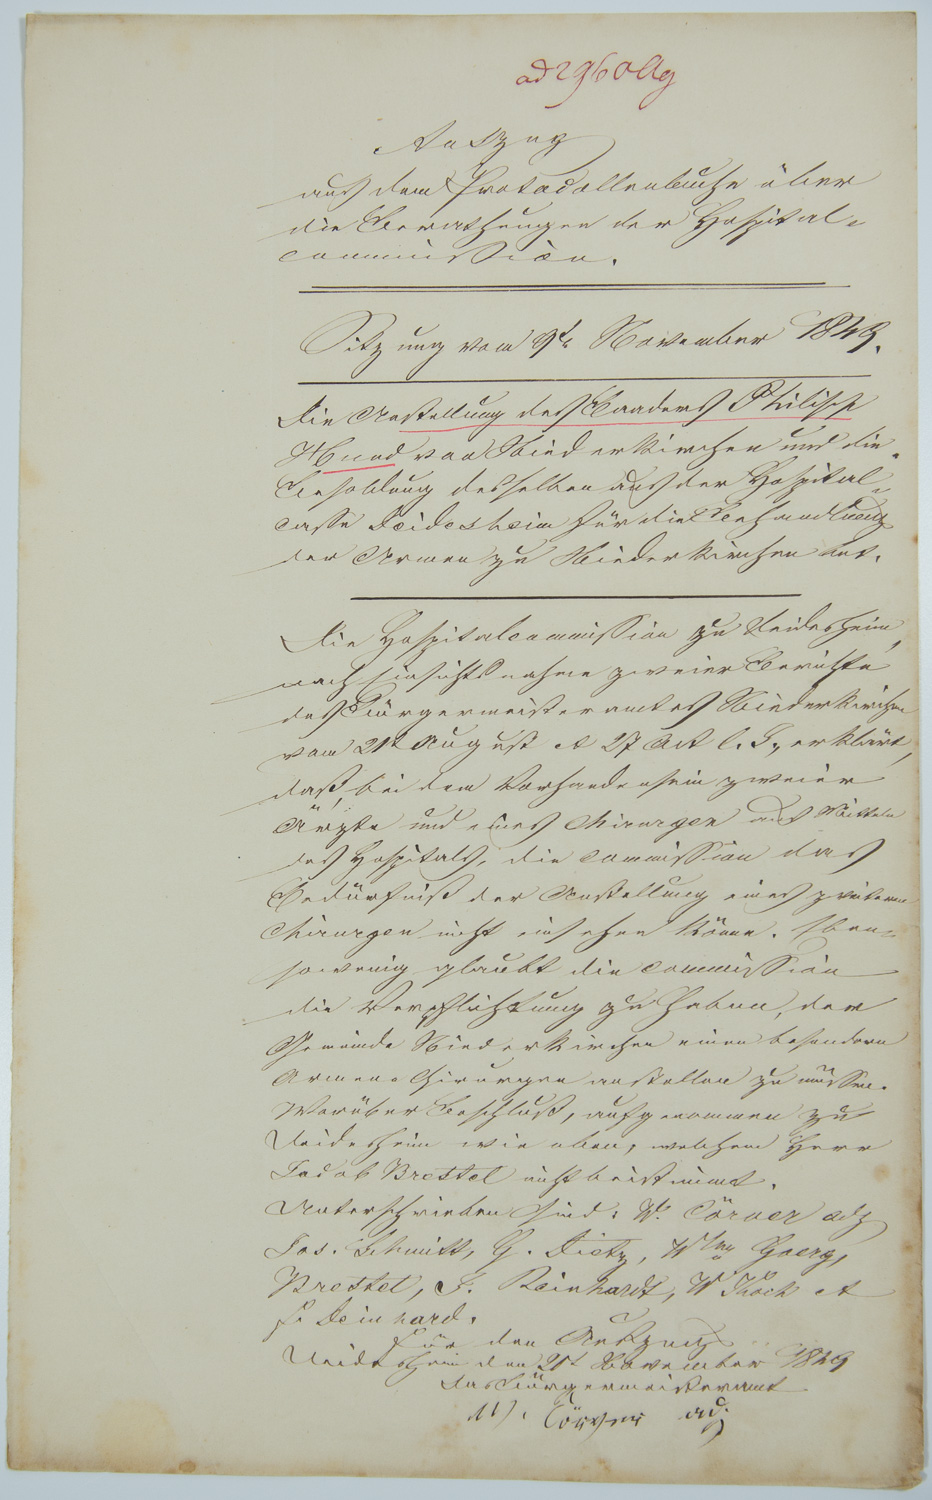 ad 2960 Ag
Auszug
aus dem Protocollenbuche über
die Berathungen der Hospital-
commission.
Sitzung vom 9t. November 1849.
Die Anstellung des Baaders Philipp
Hund von Niederkirchen und die
Besoldung desselben aus der Hospital-
casse Deidesheim für die Behandlung
der Armen zu Niederkirchen bet.
Die Hospitalcommission zu Deidesheim,
nach Einsichtsnahme zweier Berichte
des Bürgermeisteramtes Niederkirchen
vom 21t August et 27 Oct l. J., erklärt,
daß, bei dem Vorhandensein zweier
Ärzte und eines Chirurgen aus Mitteln
des Hospitals, die Commission das
Bedürfniß der Anstellung eines zweiten
Chirurgen nicht einsehen könne. Eben-
sowenig glaubt die Commission
die Verpflichtung zu haben, der
Gemeinde Niederkirchen einen besondern
Armen-Chirurgen anstellen zu müssen.
Worüber Beschluß, aufgenommen zu
Deidesheim wie oben, welchem Herr
Jacob Brestel nicht beistimmt.
Unterschrieben sind: W. Cörver adj
Jos. Schmitt, G. Dietz, Goerg,
Brestel, J. Reinhardt, W Koch et
Fr Deinhard.
Für den Auszug
Deidesheim den 21t November 1849
Das Bürgermeisteramt
W. Cörver adj.